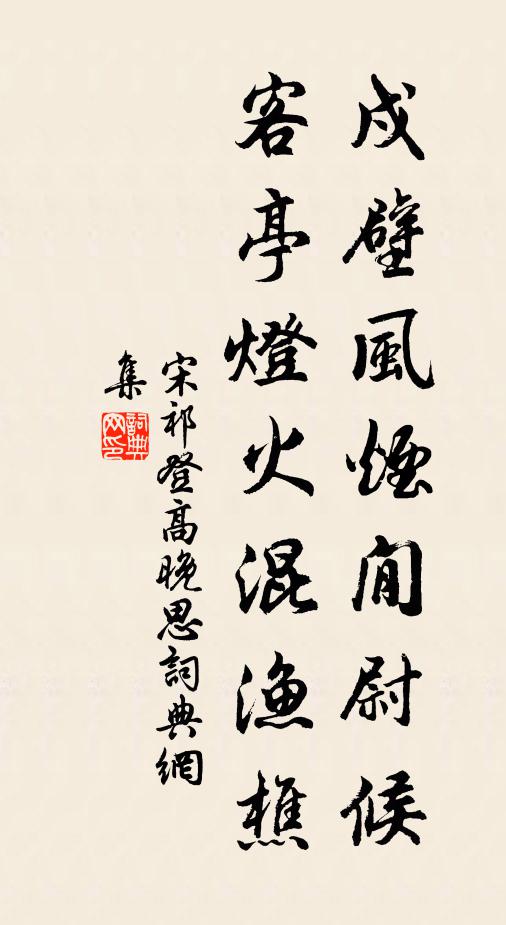 戍壁風煙閒尉候
客亭燈火混漁樵
宋祁登高晚思詞典網
集
詞典
网印